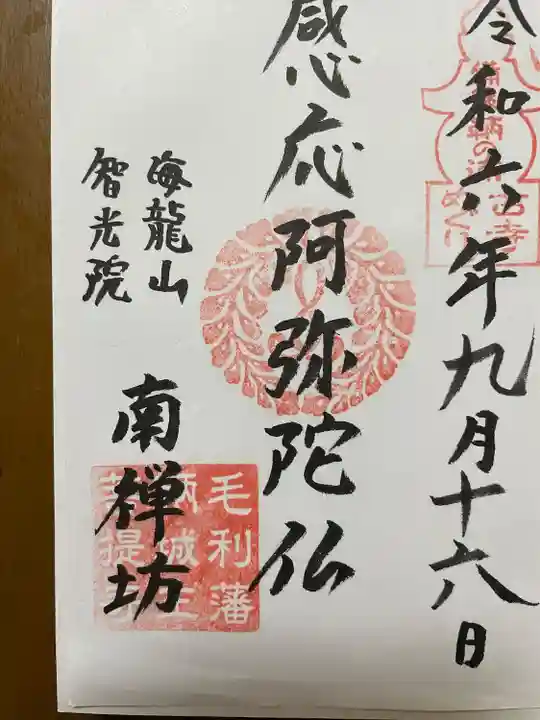 令和六年九月十六日
感応阿弥陀仏
海龍山
智光院
南禅坊
毛利藩
鞆城主
菩提寺
古寺
めぐり